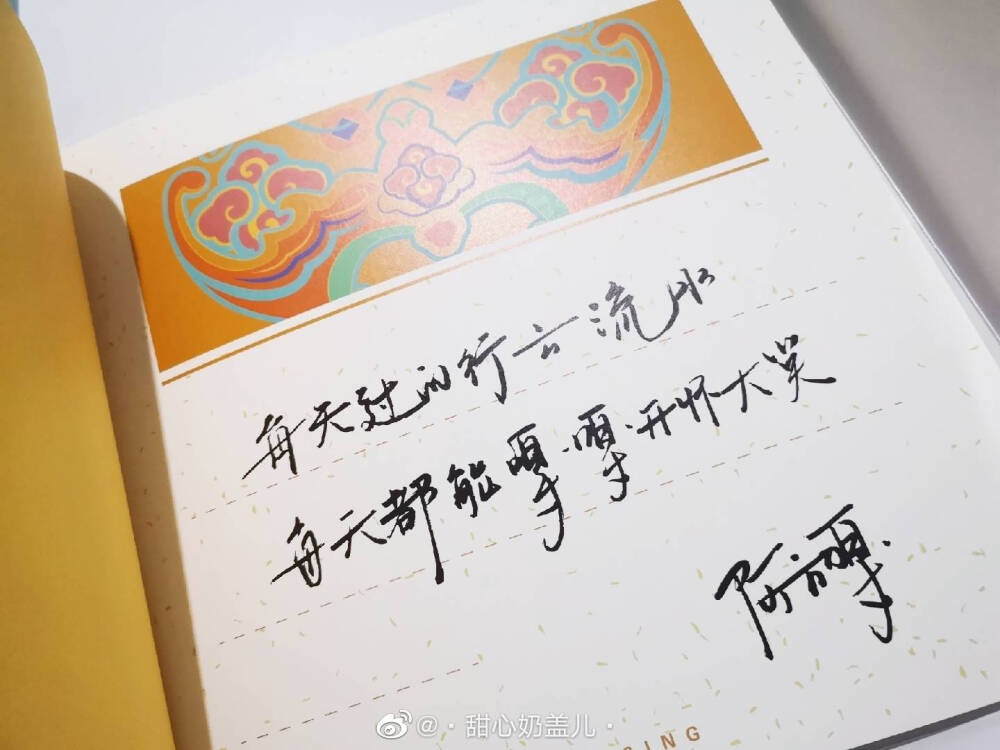 每天过的行云流水
每天都能嘎嘎开怀大笑
阿嘎
SING
@·甜心奶盖儿·